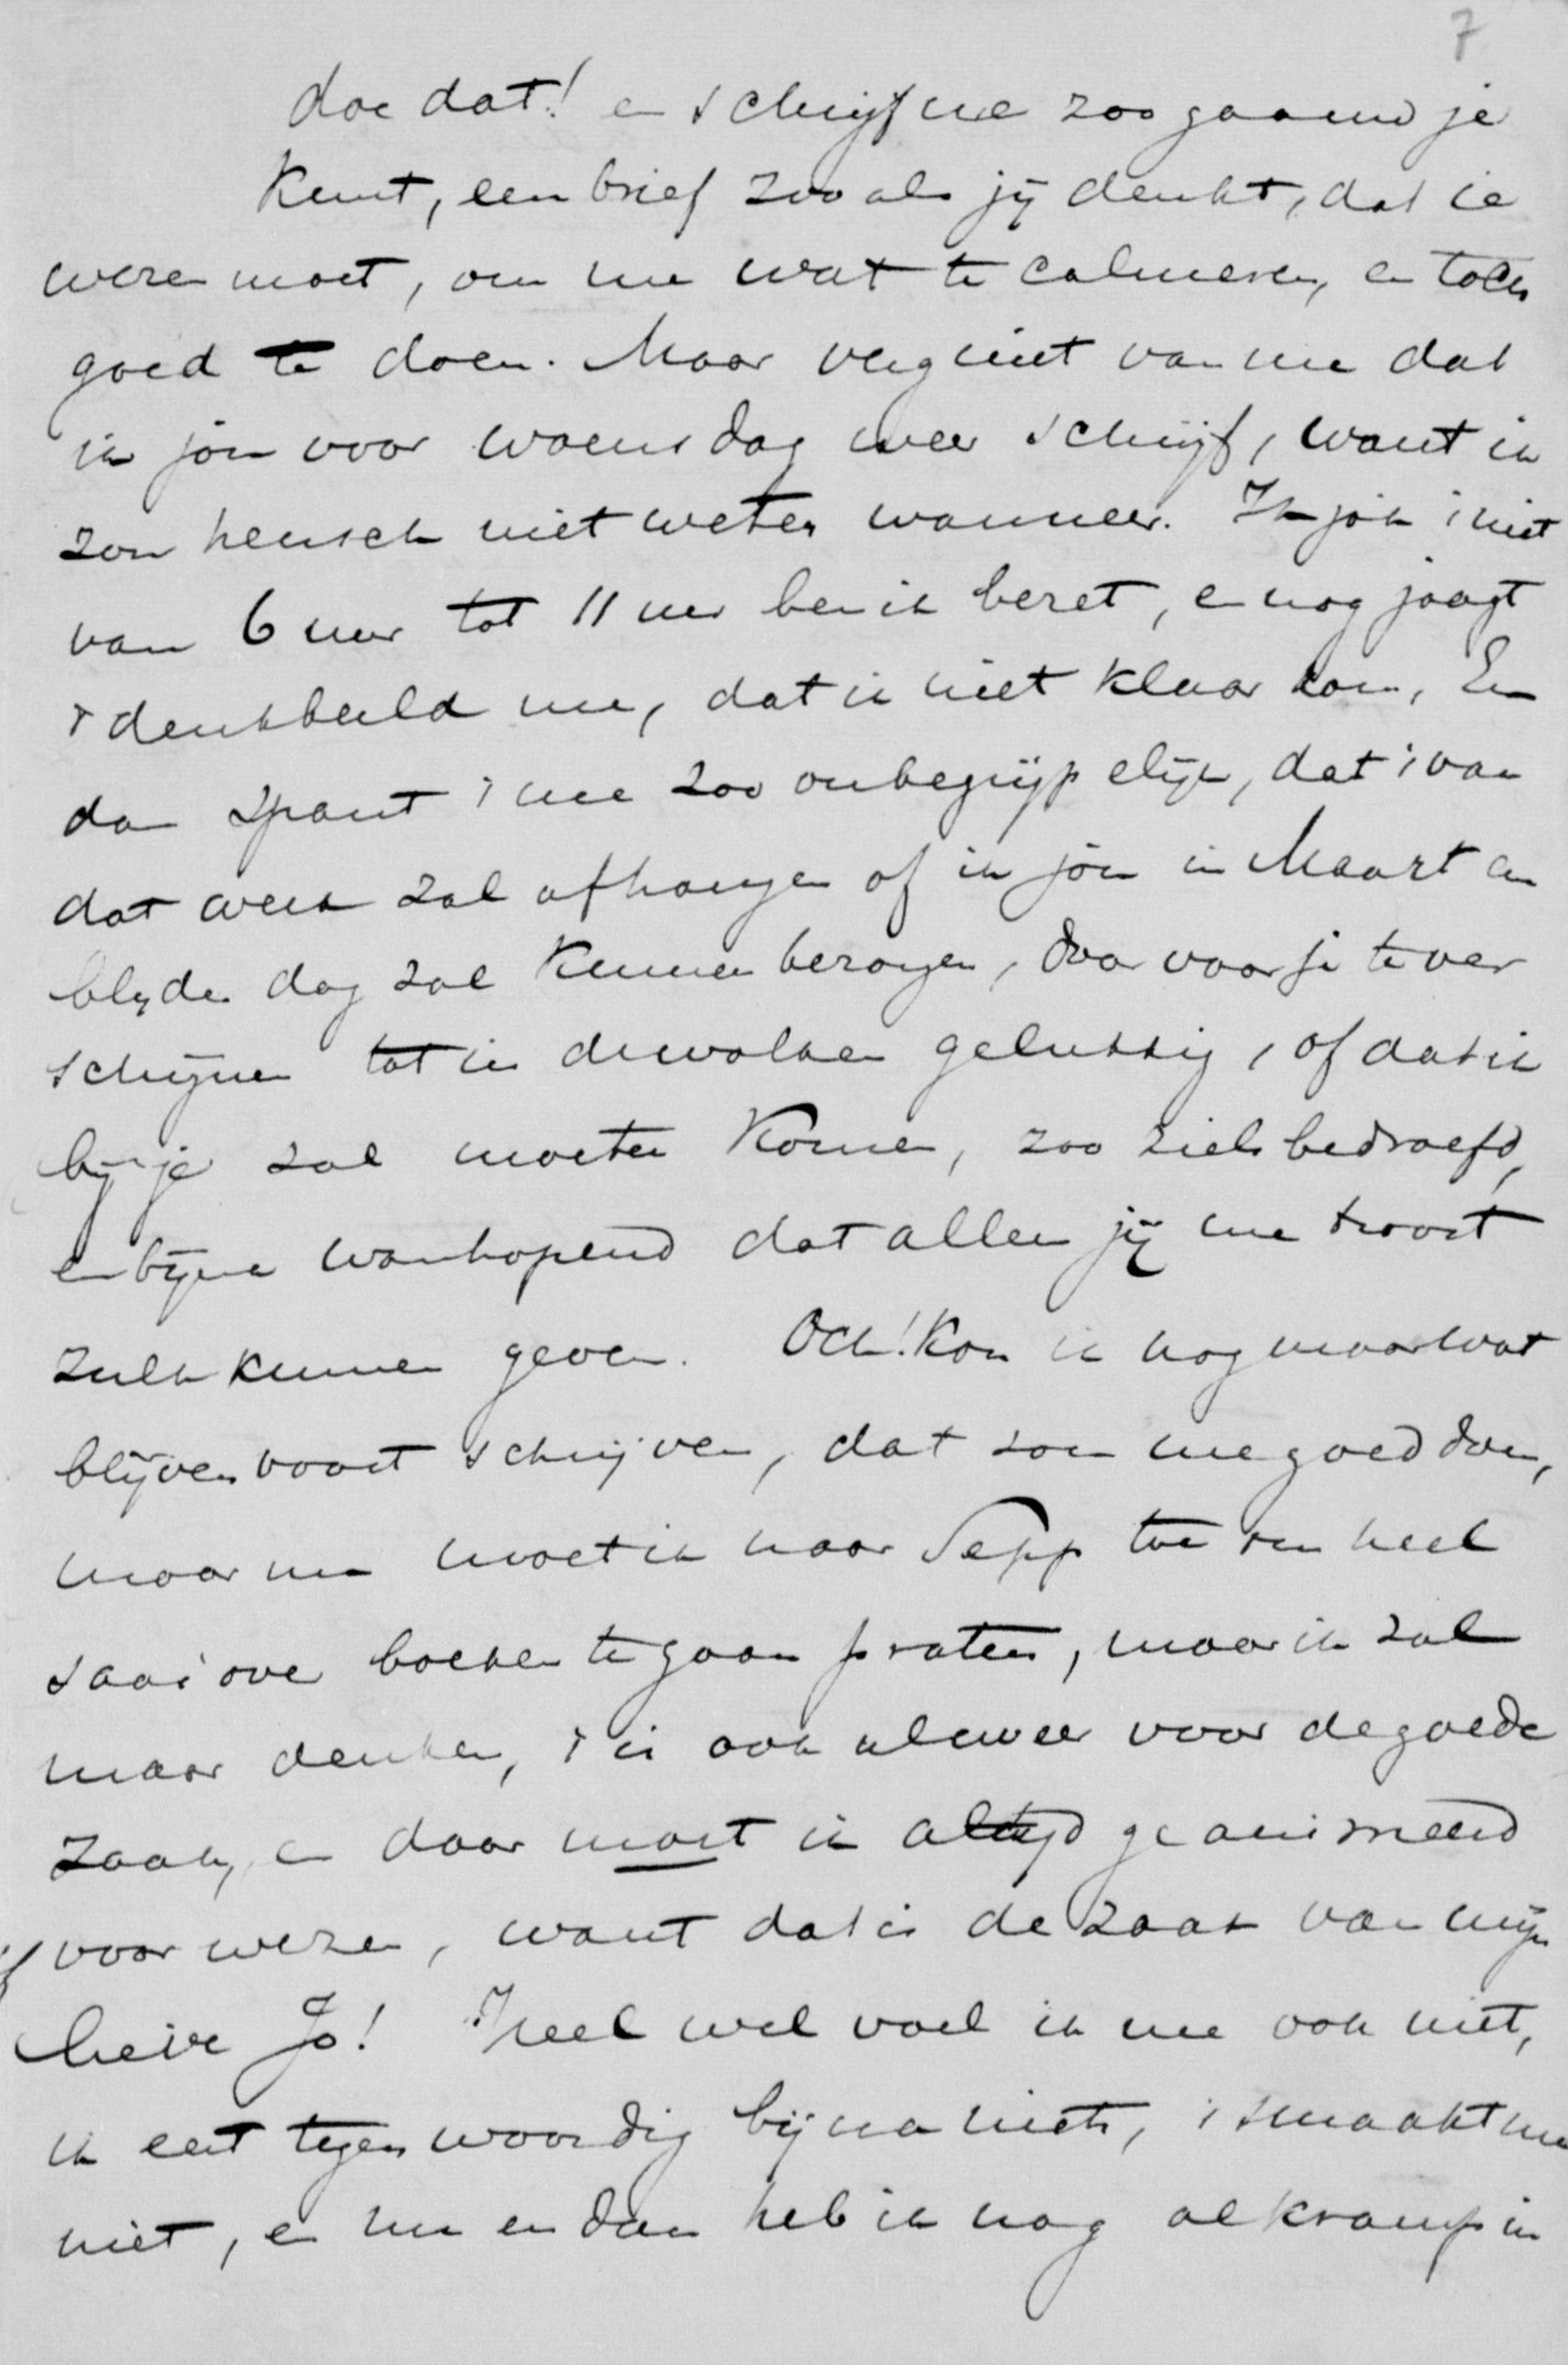 7
doe dat! en schrijf me zoo gaauw je
kunt, een brief zooals jij denkt, dat ie
wezen moet, om me wat te calmeren, en toch
goed te doen. Maar verg niet van me dat
ik jou voor woensdag weer schrijf, want ik
zou heusch niet weten wanneer. Ik jok i niet
van 6 uur tot 11 uur ben ik bezet, en nog jaagt
't denkbeeld me, dat ik niet klaar kom, En
dan spant i me zoo onbegrijpelijk, dat i van
dat werk zal afhangen of ik jou in Maart en
blyden dag zal kunnen bezorgen, door voor je te ver
schijnen tot in de wolken gelukkig, of dat ik
bij je zal moeten komen, zoo zielsbedroefd,
en bijna wanhopend dat alleen jij me troost
zult kunnen geven. Och! kon ik nog maar wat
blijven voortschrijven, dat zou me goed doen,
maar nu moet ik naar Sepp toe om heel
saai over boeken te gaan praten, maar ik zal
maar denken, 't is ook alweer voor de goede
zaak, en daar moet ik altijd geanimeerd
voor wezen, want dat is de zaak van mijn
lieve Jo! Heel wel voel ik me ook niet,
ik eet tegenwoordig bijna niets, i smaakt me
niet, en nu en dan heb ik nog al kramp in